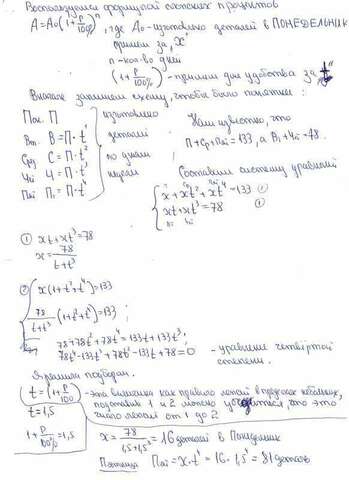 Воспользуемся формулой сложных процентов
A=A₀(1+p/100)ⁿ, где A₀-изготовлено деталей в ПОНЕДЕЛЬНИК
примем за "x"
n-кол-во дней
(1+p/100%)-примем для удобства за "t"
Вначале запишем схему, чтобы было понятнее:
Пон. П
Вт. В=П·t¹
Сред С=П·t²
Чет Ч=П·t³
Пят П₁=П·t⁴
изготовлено
деталей
по дням
недели
Нам известно, что
П+Ср+Пят=133, а В+Чет=78.
Составим систему уравнений
x+xt²+xt⁴=133 ①
xt+xt³=78 ②
① xt+xt³=78
x=78/(t+t³)
② x(1+t²+t⁴)=133
78/(t+t³) (1+t²+t⁴)=133;
78+78t²+78t⁴=133t+133t³;
78t⁴-133t³+78t²-133t+78=0 - уравнение четвёртой
степени.
Я решил подбором.
t=(1+p/100) -эта величина как правило лежит в пределах небольших,
подставив 1 и 2 можно убедиться, что это
число лежит от 1 до 2
t=1,5
1+p/100%=1,5
x=78/(1,5+1,5³)=16 деталей в Понедельник
Пятница Пят=x·t⁴=16·1,5⁴=81 деталь